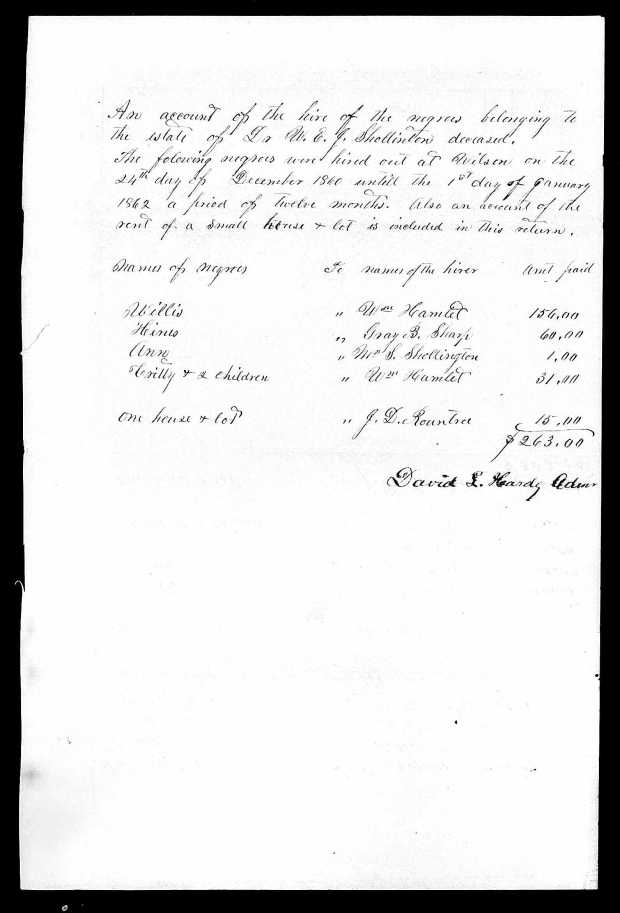 An account of the hire of the negroes belonging to
the estate of Dr W. E. J. Shollinton deceased.
The folowing negroes were hired out at Wilson on the
24th day of December 1860 untill the 1st day of January
1862 a priod of twelve months. Also an account of the
rent of a small house & lot is included in this return.
Names of negroes To names of the hirer Amt paid
Willis " Wm Hamlet 156.00
Hines " Gray B. Sharp 60.00
Ann " Mrs S. Shollington 1.00
& 2 children " Wm Hamlet 31.00
One house & lot " J. D. Rountree 15.00
$263.00
David L. Hardy Admr